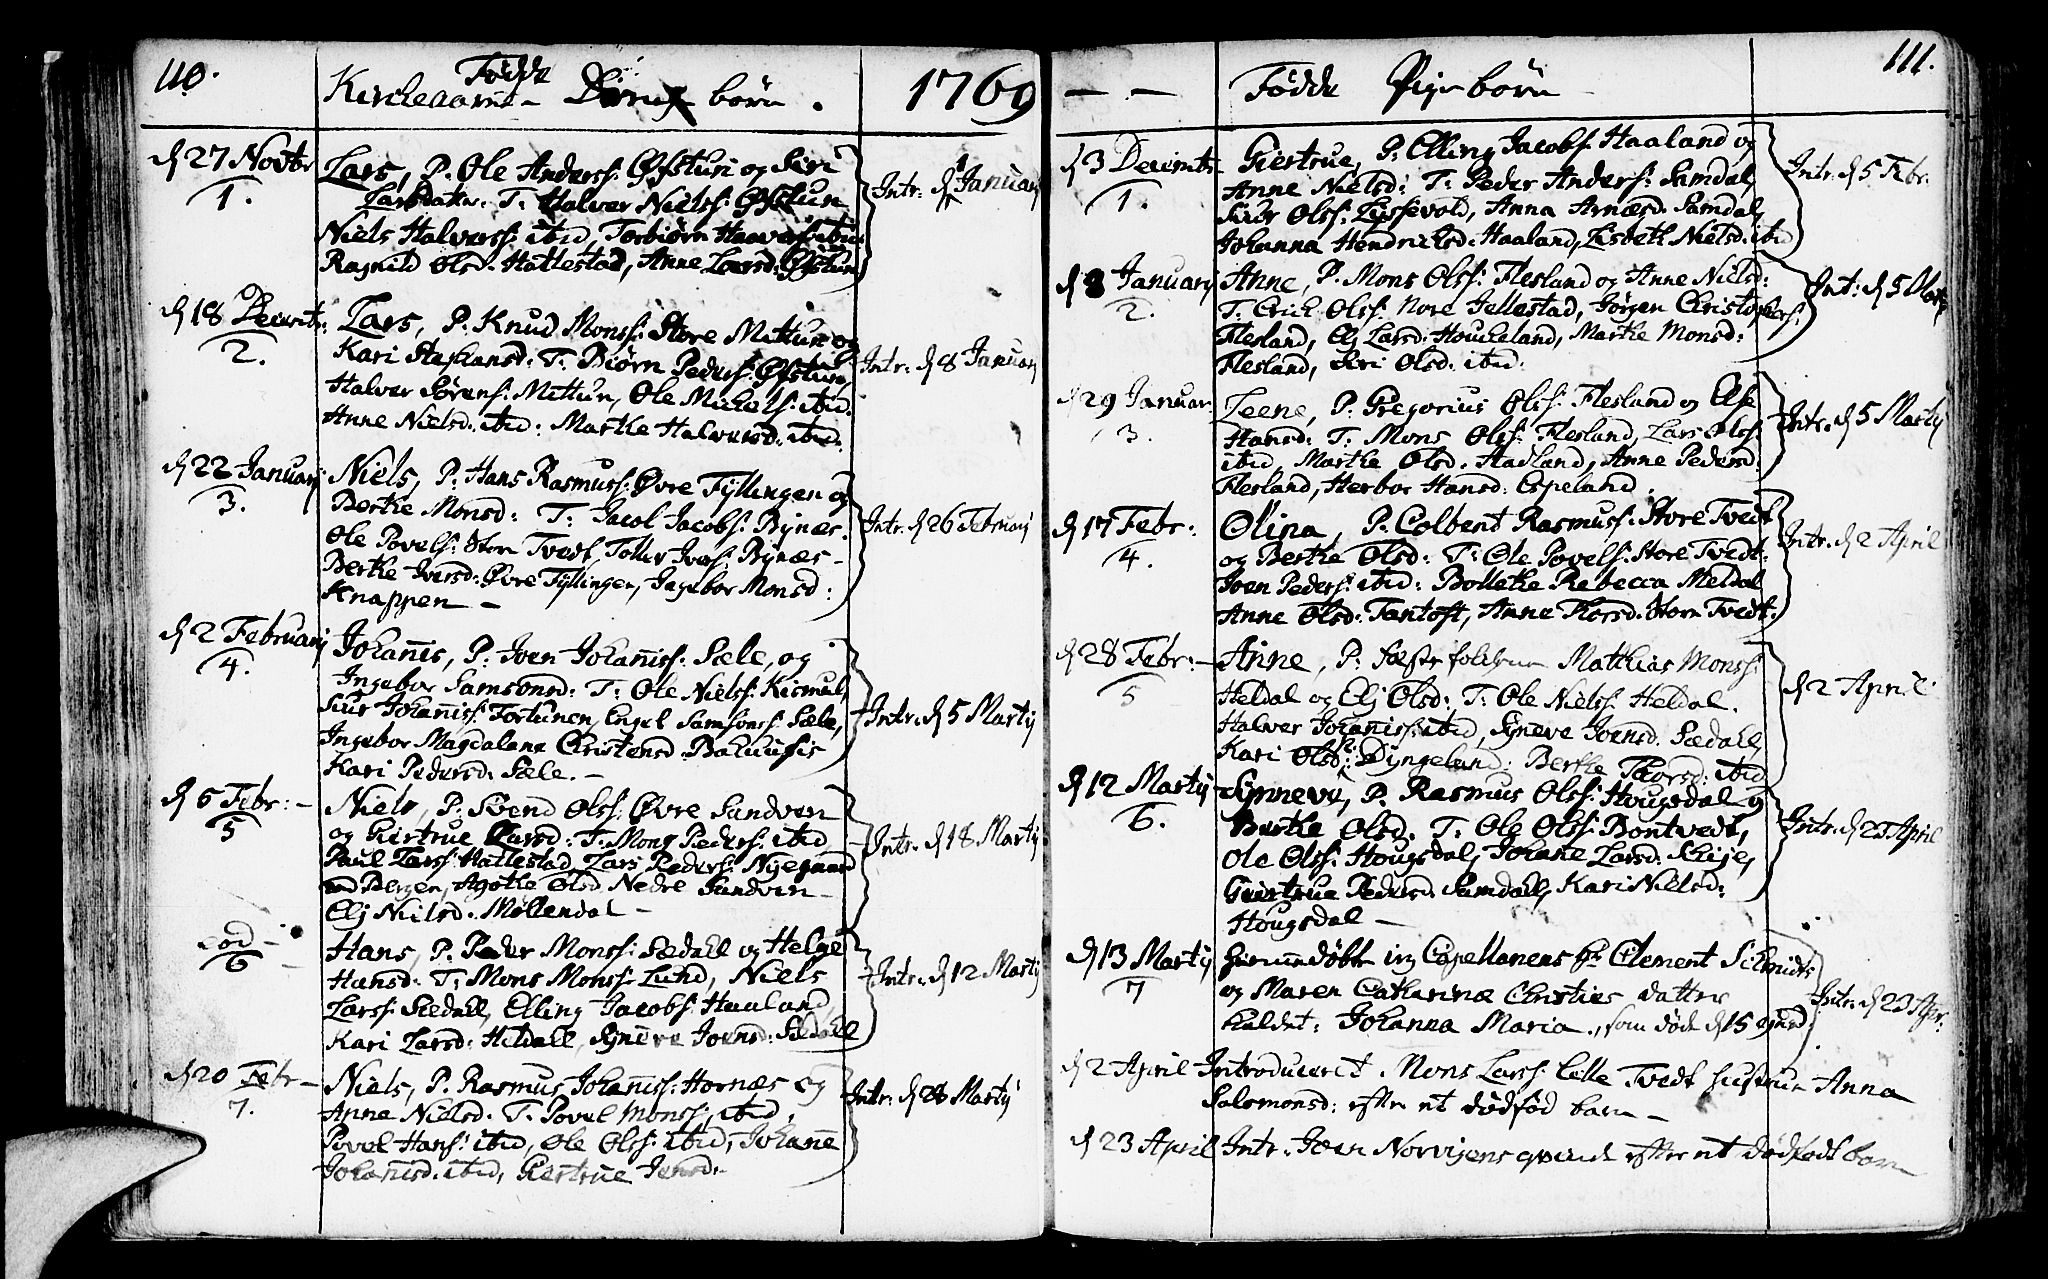 110.
Fødde
Kirckeaaret Drenge børn. 1769
d 27 Novbr
1.
Lars, P. Ole Anders: Øfstun og Siri
Larsdatter. T: Halver Niels: Øfstun
Niels Halvers: ibid, Torbiørn Haavers: ibid
Ragnild Olsd. Hattestad, Anne Larsd. Øfstun
Intr: d 1 Januarij
d 18 Decembr.
2.
Lars, P. Knud Mons: Store Mittun og
Kari Staphansd: T: Biørn Peders: Øfstun,
Halver Sørens: Mittun, Ole Michels: ibid.
Anne Nielsd. ibid: Marthe Halversd. ibid.
Intr: d 8 Januarij
d 22 Januarij
3.
Niels, P. Hans Rasmuss: Øvre Fyllingen og
Berthe Monsd: T: Jacob Jacobs: Bynæs.
Ole Povels: Store Tvedt, Toller Ivers: Bynæs-
Berthe Iversd: Øvre Fyllingen, Ingebor Monsd:
Knappen -
Intr. d 26 Februarij
d 2 Februarij
4.
Johannis, P: Joen Johannis: Sæle, og
Ingebor Samsonsd: T: Ole Niels: Kismul,
Siur Johannis: Fortunen, Engel Samsons: Sæle,
Ingebor Magdalana Christensd.
Kari Pedersd. Sæle. -
Intr. d 5 Martij
d 5 Febr: -
5
Niels, P: Svend Ols: Øvre Sandven
og Giertrue Larsd: T: Mons Peders: ibid
Paul Lars: Hattestad, Lars Peders: Nyegaard
ved Bergen, Agathe Olsd. Nedre Sandven -
Elj Nielsd. Møllendal -
Intr. d 18 Martij
eod -
6
Hans, P. Peder Mons: Sædall og Helge
Hansd: T: Mons Mons: Lund, Niels
Lars: Sædall, Elling Jacobs: Haaland
Kari Larsd: Heldall, Synneve Joensd: Sædall
Intr. d 12 Martij
d 20 Febr -
7.
Niels, P. Rasmus Johannis: Hornæs og
Anne Nielsd. T. Povel Mons: ibid,
Povel Hans: ibid, Ole Ols: ibid, Johanne
Johannisd. ibid, Giertrue Jensd.
Intr: d 28 Martij
111.
- - Fødde Pige børn
d 3 Decembr
1.
Giertrue, P: Elling Jacobs: Haaland og
Anne Nielsd: T: Peder Anders: Samdal,
Siur Ols: Lyssevold, Anna Arnæsd. Samdal,
Johanna Hendrichsd. Haaland, Lisbeth Nielsd. ibid
Intr. d 5 Febr.
d 8 Januarij
2.
Anne, P. Mons Ols: Flesland og Anne Nielsd:
T. Erich Ols: Nore Jellestad, Jørgen Christophers:
Flesland, Elj Larsd: Houckeland, Marthe Monsd:
Flesland, Siri Olsd: ibid.
Int: d 5 Mart
d 29 Januar.
3.
Leene, P: Gregorius Ols: Flesland og Else
Hansd: T: Mons Ols: Flesland, Lars Ols:
ibid, Marthe Olsd. Stadland, Anne Pedersd.
Flesland, Herbor Hansd: Espeland.
Intr. d 5 Martij
d 17 Febr:
4.
Olina, P. Colbent Rasmus: Store Tvedt
og Berthe Olsd: T: Ole Povels: Store Tvedt.
Joen Peders: ibid: Bollethe Rebecca Meldal
Anne Olsd: Fantoft, Anne Thorsd. Store Tvedt.
Intr. d 2 April
d 28 Febr: -
5
Anne, P: Mathias Mons:
Heldal og Elj Olsd: T: Ole Niels: Heldal.
Halver Johannis: ibid, Synneve Joensd. Sædall,
Kari Olsd: Dyngeland: Berthe Thorsd: ibid
d 2 April
d 12 Martij
6.
Synneve, P. Rasmus Ols: Hougsdal og
Berthe Olsd. T: Ole Ols: Bontvedt,
Ole Ols: Hougsdal, Johane Larsd: Schije,
Giertrue Pedersd. Samdall, Kari Nielsd:
Hougsdal -
Intr. d 23 April
d 13 Martij
7
Giemmedøbt Capellanens Hr Clement Schmidts
og Maren Catharinæ Christies datter
kaldet: Johanna Maria, som døde d 15 ejusd.
Intr: d 23 Apr.
d 2 April Introduceret Mons Lars: Lille Tvedt hustrue Anna
Salomonsd: efter et dødfød barn -
d 23 April Intr. Joen Norvigens qvinde efter et dødfødt barn